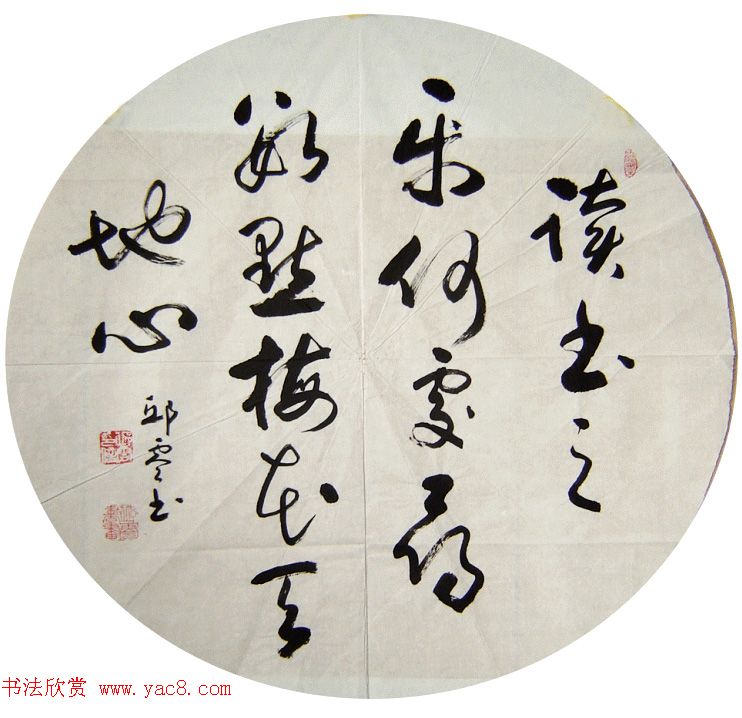 读书之
乐何處尋
数點梅花天
地心
邱雲书
书法欣赏 www.yac8.com